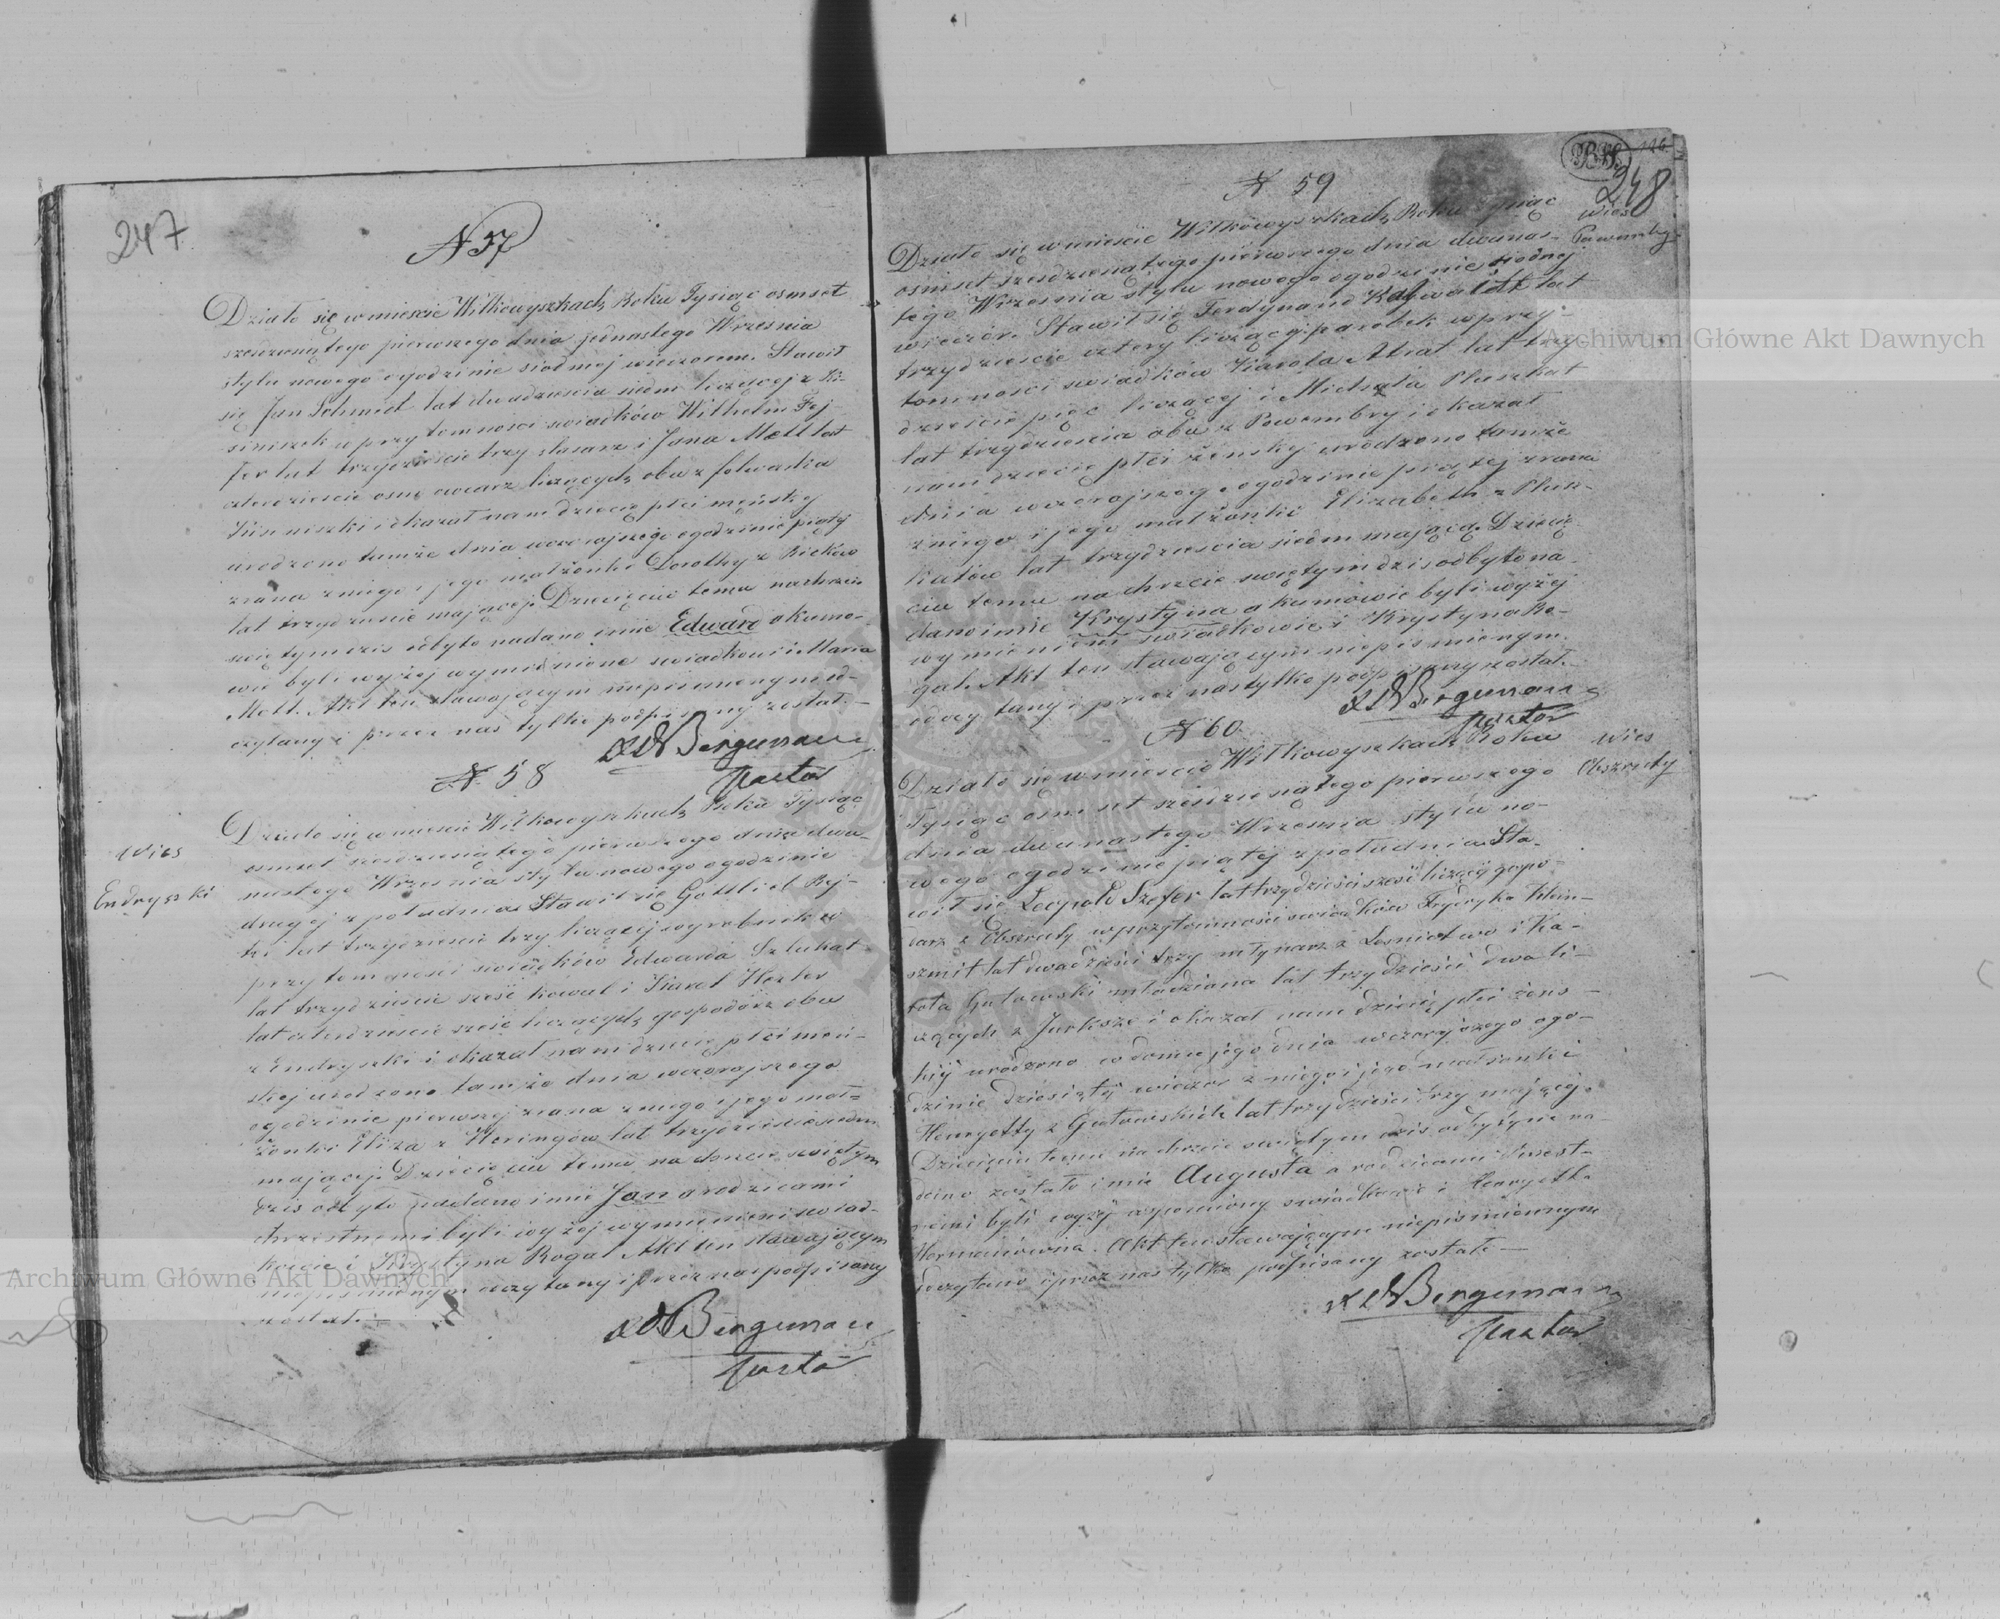 247
N 57
Działo się w mieście Wiłkowyszkach Roku Tysiąc osmset
szesdziesiątego pierwszego dnia jednastego Wrzesnia
stylu nowego o godzinie siodmej wieczorem. Stawił
się Jan Schmidt lat dwadziescia siedm liczący z
w przytomnosci swiadków Wilhelm Fej
fer lat trzydziescie trzy slusarz i Jana Mett lat
czterdziescie osm owczarz liczących obu z folwarku
i okazał nam dziecię płci męzkey
urodzone tamże dnia wczorajszego o godzinie piątej
zrana z niego i jego małżonki Dorothy z
lat trzydziescie mającej. Dziecięciu temu na chrzcie
swiętym dzis odbyto nadano imie Edward a kumo-
wie byli wyżej wymienione swiadkowi i Maria
Mett. Akt ten stawającym niepismennym od-
czytany i przez nas tylko podpisany został. —
Bergemann
Pastor
N. 58
wies
Endryszki
Działo się w miescie Wiłkowyszkach Roku Tysiąc
osmset szesdziesiątego pierwszego dnia dwu-
nastego Wrzesnia stylu nowego o godzinie
drugej z południa Stawił się Gottlieb Rej-
ki lat trzydziescie trzy liczącej wyrobnik w
przytomnosci swiadków Edwarda
lat trzydziescie szesć kowal i Karol Hexler
lat czterdziescie szesć liczących gospodarz obu
z Endryszki i okazał nam dziecię płci męz-
kiej urodzone tamże dnia wczorajszego
o godzinie pierwszej zrana z niego i jego mał=
żonki Eliza z Heringów lat trzydziescie siedm
mającej. Dziecięciu temu na chrzcie swiętym
dzis odbyto nadano imie Jan a rodzicami
chrzestnemi byli wyżej wymienieni swiad-
kowie i Krystyna Rogal Akt ten stawającym
niepismennym odczytany i przez nas podpisany
został. —
Bergemann
Pastor
248
N 59
wies
Pawembry
Działo się w miescie Wiłkowyszkach Roku Tysiąc
osmset szesdziesiątego pierwszego dnia dwunas-
tego Wrzesnia stylu nowego o godzinie siodmy
wieczór. Stawił się Ferdynand lat
trzydziescie cztery liczącej parobek w przy-
tomnosci swiadków Karola Atrat lat trzy-
dziescie pięc liczącej i Michała Pluszkat
lat trzydziescia obu z Powembry i okazał
nam dziecie płci żenskij urodzono tamże
dnia wczorajszego o godzinie piątej zrana
z niego i jego małżonki Elizabeth z Plusz-
katów lat trzydziescia siedm mającą. Dziecię-
ciu temu na chrzcie swiętym dzis odbyto na-
dano imie Krystyna a kumowie byli wyżej
wymienieni swiadkowie i Krystyna Ro-
gal. Akt ten stawającym niepismiennym
odczytany i przez nas tylko podpisany został. —
Bergemann
Pastor
N 60
wies
Obszruty
Działo się w miescie Wiłkowyszkach Roku
Tysiąc osmset szesdziesiątego pierwszego
dnia dwunastego Wrzesnia stylu no-
wego o godzinie piątej z południa Sta-
wił się Leopold Szefer lat trzydzieści szesć liczący gospo-
darz z Obszruty w przytomności swiadków Frydryka Klein-
szmit lat dwadzieści trzy młynarz z Lesnictwo i Ka-
rola Gutowski młodziana lat trzydzieści dwa li-
czących z Jurksze i okazał nam dziecię płci żens-
kiy urodzono w domie jego dnia wczorajszego o go-
dzinie dziesiąty wieczor z niego i jego małżonki
Henryetty z Gutowskich lat trzydzieści trzy mającej.
Dziecięciu temu na chrzcie swiętym dzis odbytym na-
dano zostało imie Augusta a rodzicami chrzest-
nemi byli wyżej wymieniony swiadkowie i Henryetta
Hermanówna. Akt ten stawającym niepismiennym
odczytano i przez nas tylko podpisany został —
Bergemann
Pastor
Archiwum Główne Akt Dawnych
Archiwum Główne Akt Dawnych